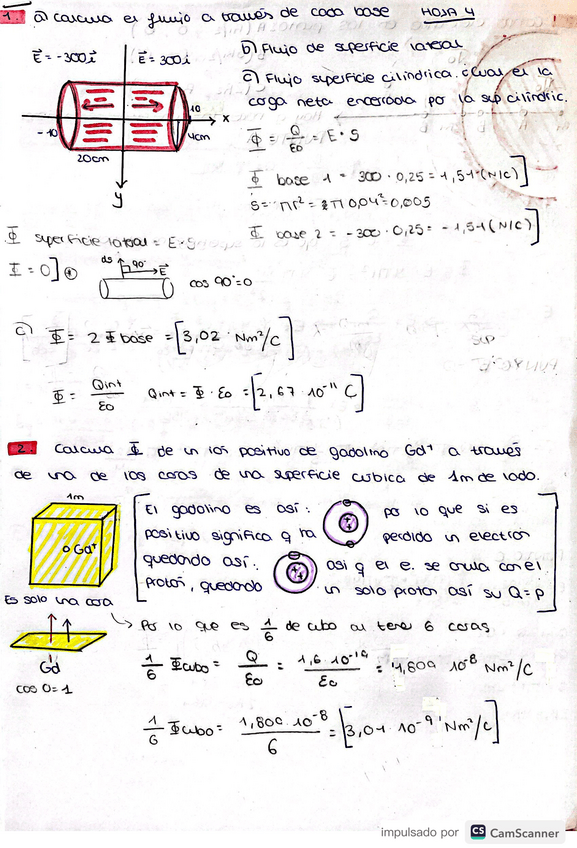 1. a) calcula el flujo a través de cada base HOJA 4
E = -300i E = 300i
b) Flujo de superficie lateral
c) Flujo superficie cilíndrica. cual es la
carga neta encerrada por la sup. cilíndric.
-10 10 x
4cm
20cm
y
Φ = Q/ε0 = E · S
Φ base 1 = 300 · 0,25 = 1,51 (N/C)]
S = πr² = π 0,04² = 0,005
Φ base 2 = -300 · 0,25 = -1,51 (N/C)]
Φ superficie lateral = E · S
Φ = 0]
ds 90° E
cos 90° = 0
c) Φ = 2 Φ base = [3,02 · Nm²/C]
Φ = Qint/ε0 Qint = Φ · ε0 = [2,67 · 10⁻¹¹ C]
2. Calcula Φ de un ion positivo de gadolino Gd⁺ a través
de una de las caras de una superficie cubica de 1m de lado.
1m
Gd⁺
El gadolino es así: por lo que si es
positivo significa q ha perdido un electron
quedando así: asi q el e. se anula con el
proton, quedando un solo proton así su Q = p
Es solo una cara
Por lo que es 1/6 de cubo al tener 6 caras
Gd
cos 0 = 1
1/6 Φcubo = Q/ε0 = 1,6 · 10⁻¹⁹/ε0 = 1,809 10⁻⁸ Nm²/C
1/6 Φcubo = 1,809 · 10⁻⁸/6 = [3,01 · 10⁻⁹ Nm²/C]
impulsado por CS CamScanner